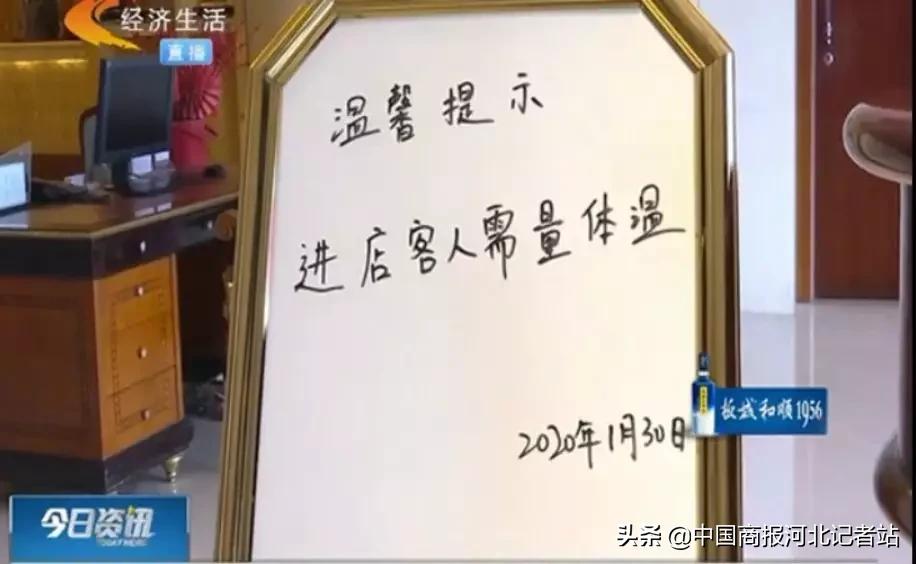 经济生活
直播
温馨提示
进店客人需量体温
2020年1月30日
板城和顺1956
今日资讯
头条 @中国商报河北记者站